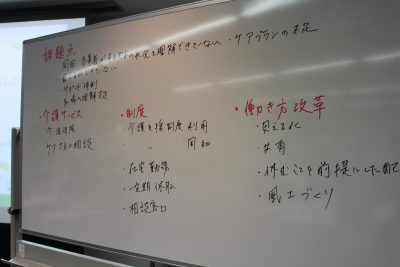 課題点
・周囲、当事者が
状況を理解できていない
・ケアプランの不足
サポート体制
職場の理解不足
・介護サービス
介護保険
ケアマネに相談
・制度
・介護支援制度 利用
・ 〃 周知
・在宅勤務
・定期休暇
・相談窓口
・働き方改革
・見える化
・共有
・休むことを前提にした配
・風土づくり